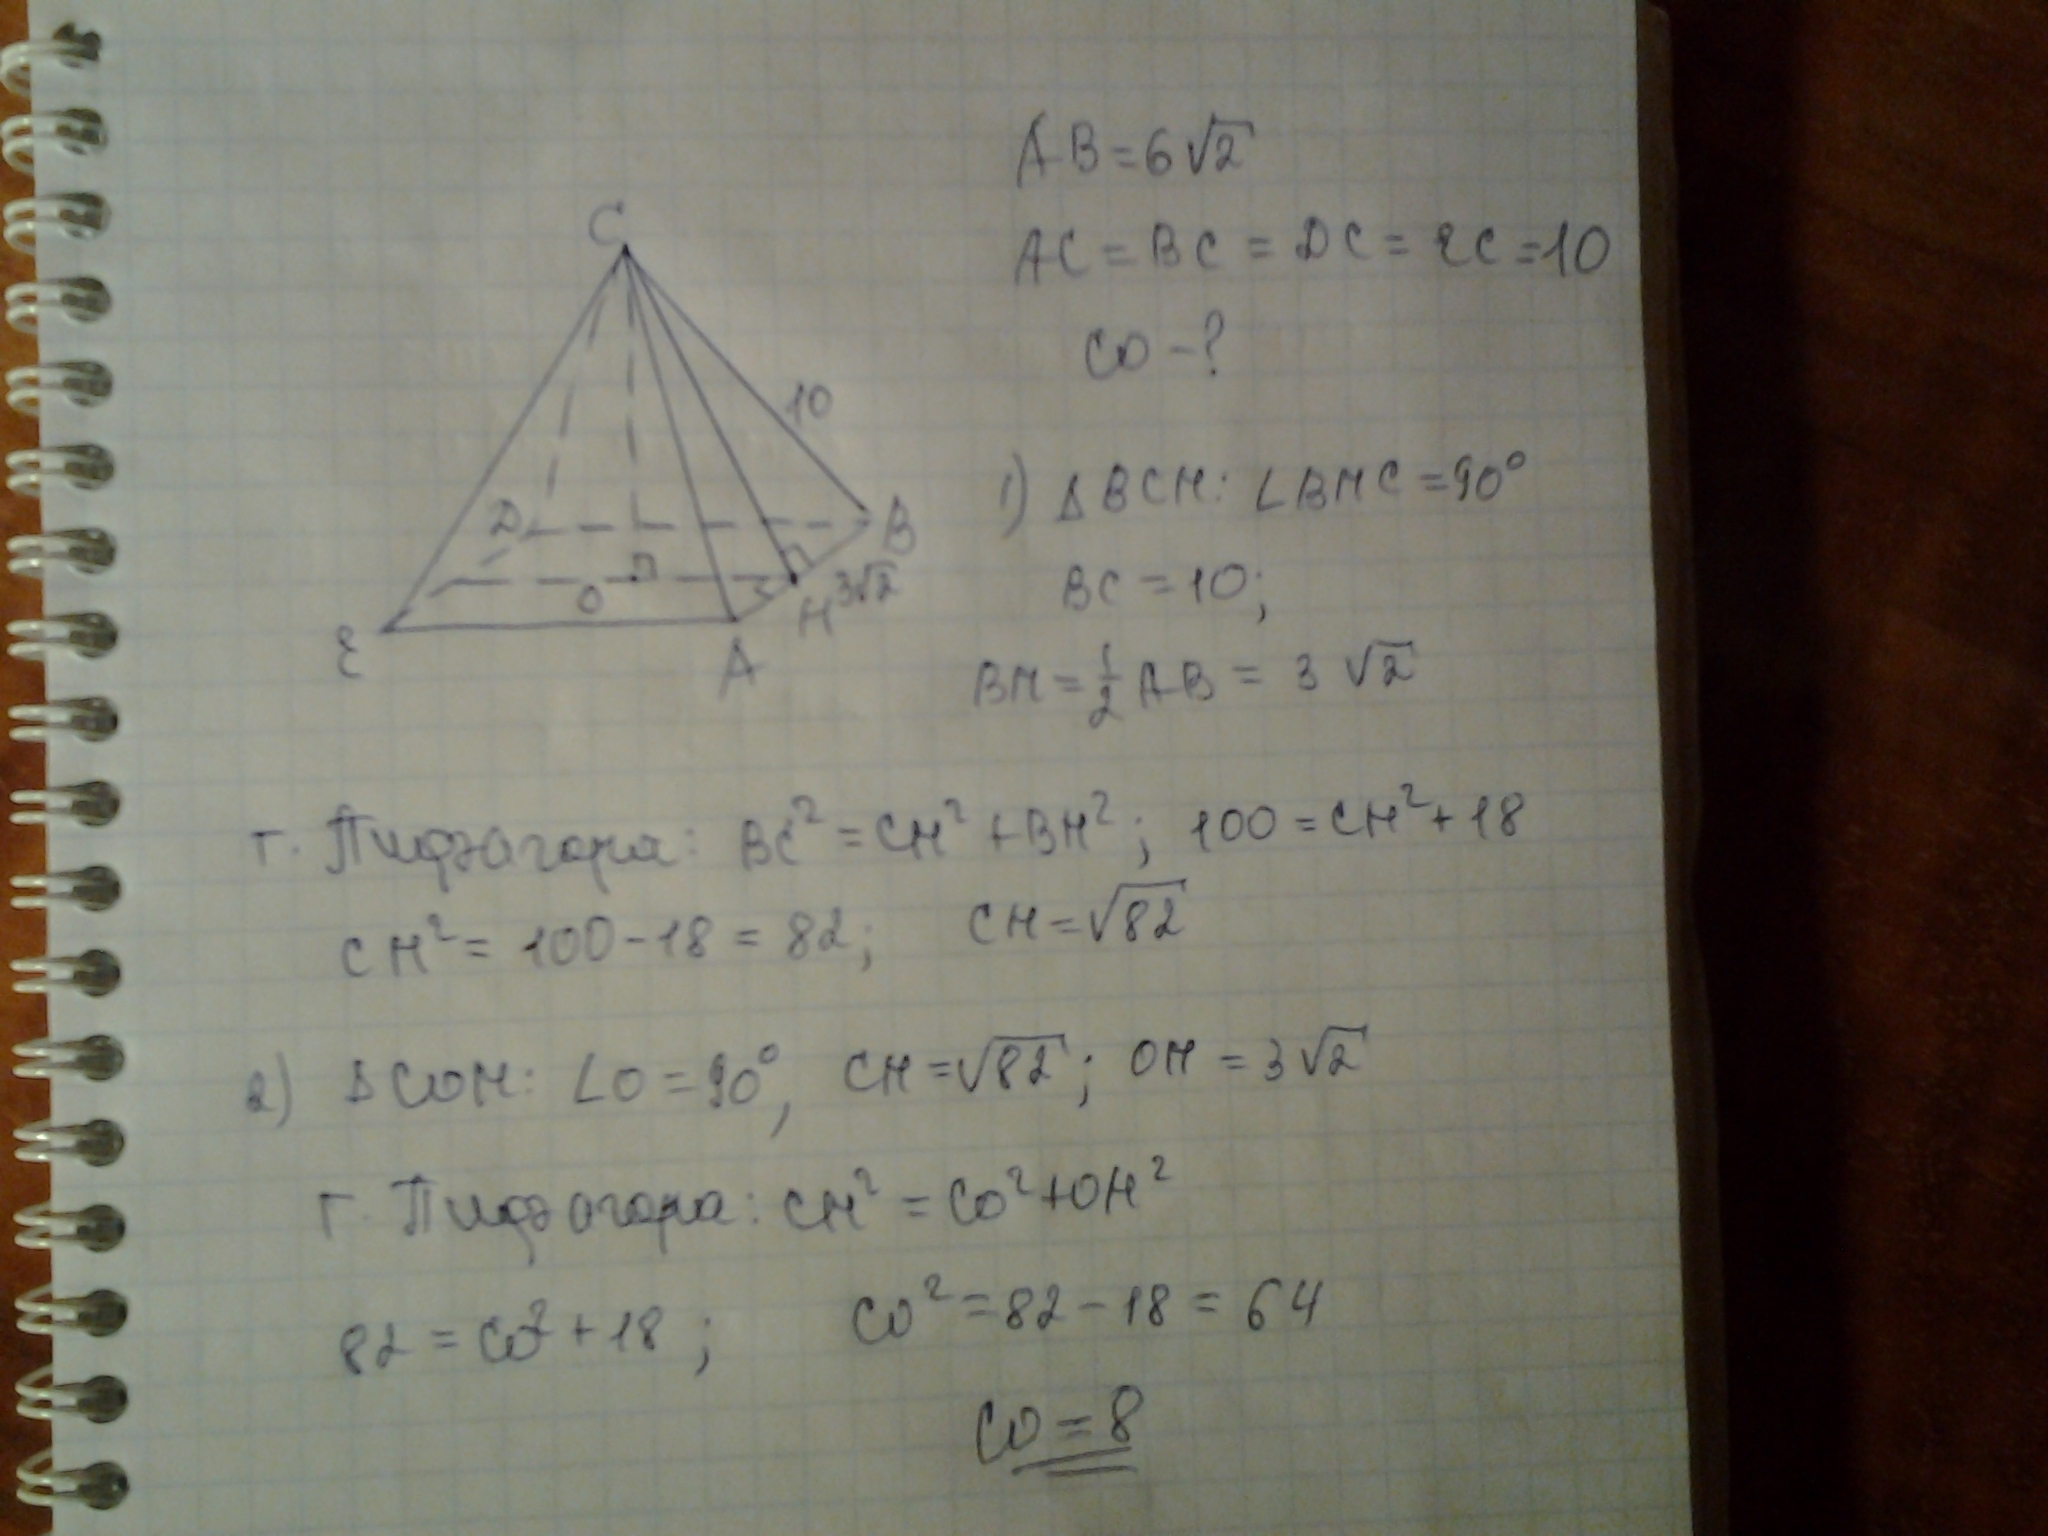 AB=6√2
AC=BC=DC=EC=10
CO-?
C
10
D
B
O
H
3√2
E
A
1) ΔBCH: ∠BHC=90°
BC=10;
BH=½AB=3√2
т. Пифагора: BC²=CH²+BH²; 100=CH²+18
CH²=100-18=82; CH=√82
2) ΔCOH: ∠O=90°, CH=√82; OH=3√2
т. Пифагора: CH²=CO²+OH²
82=CO²+18; CO²=82-18=64
CO=8